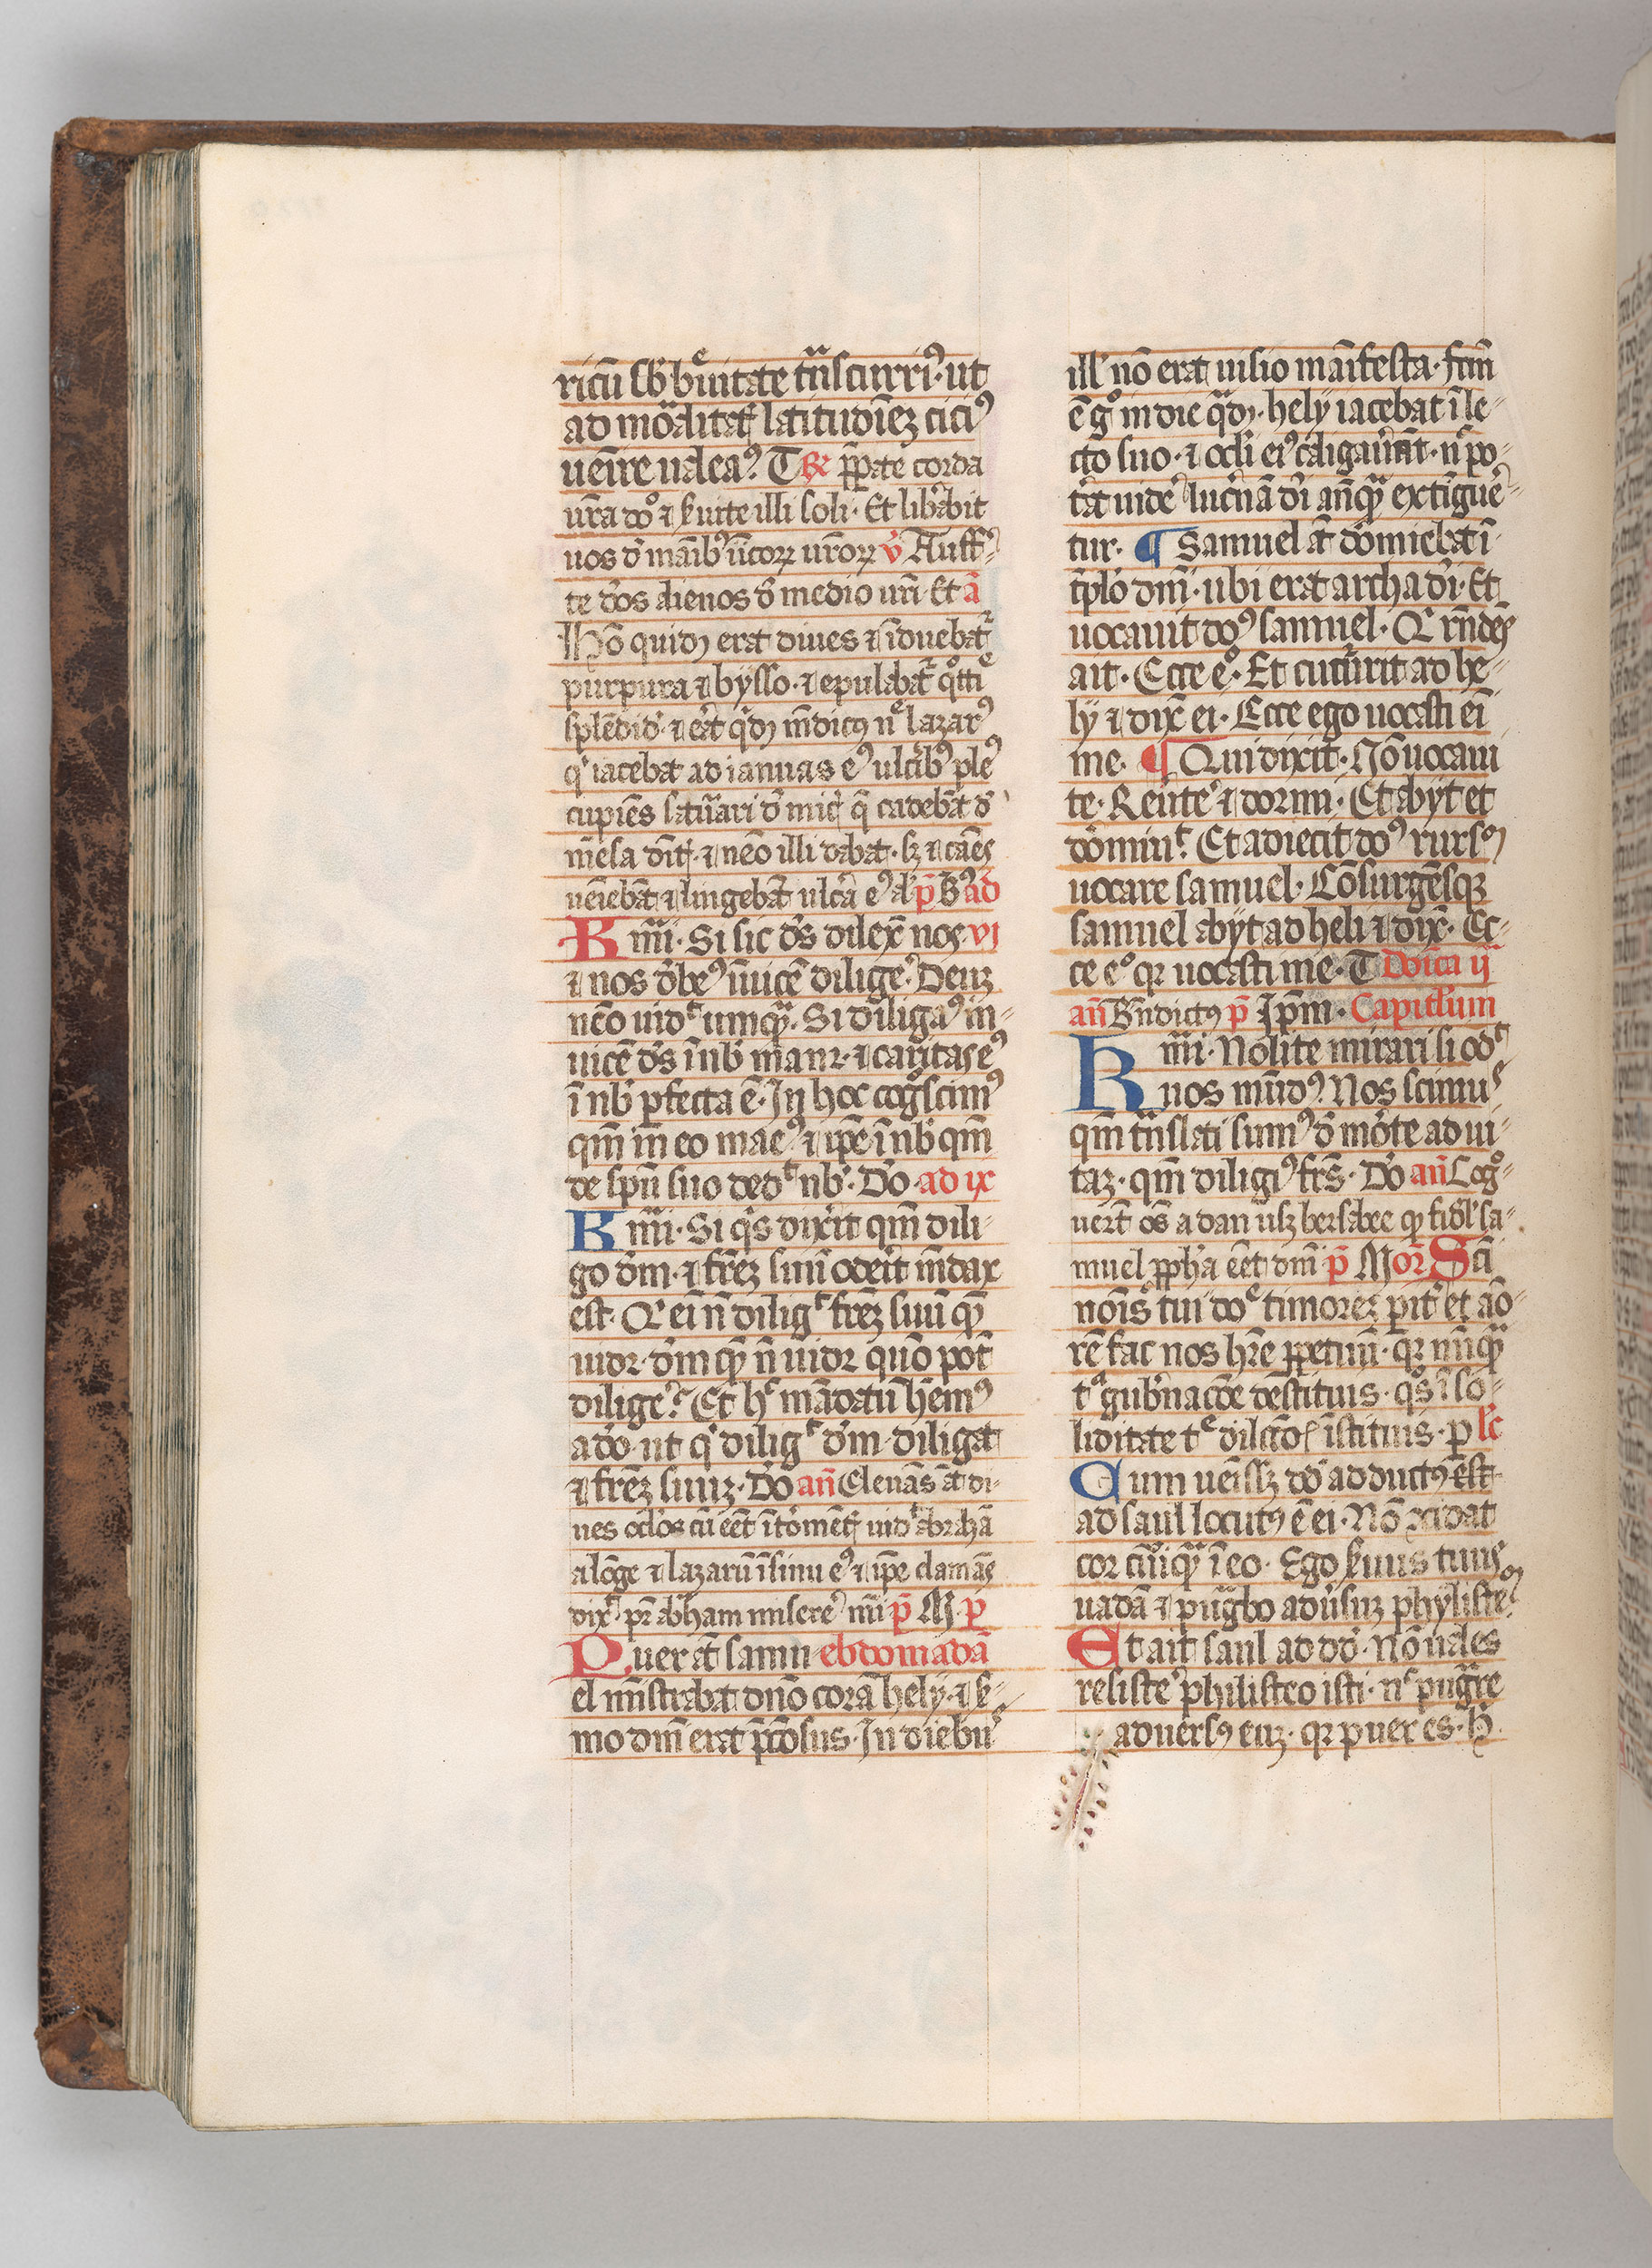 ricū sb̄ breuitate trāscurrim⁹· ut
ad moralitatꝭ latitudinēꝫ citi⁹
uenire ualeam⁹. T ℞ p̄parate corda
ur̄a dn̄o ⁊ ẜuite illi soli· Et libabit
uos d̓ manib⁹ īimicorꝝ ur̄orꝝ v̓ Auffer
te deos alienos d̓ medio ur̄i· Et ā
Hō quidā erat diues ⁊ īduebat̄
purpura ⁊ bysso· ⁊ epulabat̄ qͦttie
splēdide· ⁊ erat qͥdā mēdicus nōe lazar⁹
qͥ iacebat ad ianuas e⁹ ulcerib⁹ plen⁹
cupiēs saturari d̓ micis q̄ cadebāt d̓
mēsa diuitꝭ· ⁊ nemo illi dabat· sꝫ ⁊ canes
ueniebāt ⁊ lingebāt ulcera e⁹ al̓ p̄ Bn̓s ad
K m̄i· Si sic de⁹ dilexit nos· vi
⁊ nos debem⁹ inuicē diligere. Deuꝫ
nemo uidit umquā. Si diligam⁹ in-
uicē de⁹ ī nob̓ manet· ⁊ caritas e⁹
ī nob̓ pfecta ē· In hoc cogͦscim⁹
qm̄ in eo manem⁹ ⁊ ip̄e ī nob̓ qm̄
de sp̄u suo dedit nob̓· Do· ad ix
K m̄i· Si qͥs dixerit qm̄ dili-
go dm̄· ⁊ fr̄eꝫ suū oderit mēdax
est· Qͥ ei̓ n̄ diligit fr̄eꝫ suū quē
uidet· dm̄ quē n̄ uidet quō pot̄
diligere. Et hͦ mādatū hēm⁹
a do· ut qͥ diligit dm̄· diligat
⁊ fr̄eꝫ suuꝫ· Do an̄ Eleuās āt di-
ues oculos cū eēt ī tormētꝭ uidit abrahā
a lōge ⁊ lazarū ī sinu e⁹ ⁊ ip̄e clamās
dix̓ pr̄ abraham miserere m̄i p̄ M p̄
Puer āt samu· ebdomadā
el ministrabat dn̄o corā hely· ⁊ ẜ-
mo dm̄ erat p̄ciosus· In diebus
ill̓ nō erat uisio manifesta· fcm̄
ē gͦ in die qͣdā· hely iacebat ī le-
cto suo· ⁊ ocl̓i ei⁹ caligauerāt· n̄ po-
tat uidere lucernā dei anteqͣ extīgue-
tur· ¶ Samuel āt dormiebat ī
tēplo dm̄· ubi erat archa dei· Et
uocauit do⁹ samuel· Qͥ rn̄dēs
ait· Ecce eͦ· Et cucurrit ad he-
ly ⁊ dix̄ ei· Ecce ego uocasti ei̓
me· ¶ Qui dixit· Nō uocaui
te· Reuertere ⁊ dormi· Et abyt et
dormiuit. Et adiecit do⁹ rursū
uocare samuel· Cōsurgēsqꝫ
samuel abyt ad heli ⁊ dix̄· Ec-
ce eͦ qꝛ uocasti me· T Doīca ij
an̄ Bn̄dictus p̄ Ip̄m· Capitl̓um
K m̄i· Nolite mirari si odit
nos mūd⁹. Nos scimus
qm̄ trāslati sum⁹ d̓ morte ad ui-
taꝫ· qm̄ diligim⁹ fr̄s· Do an̄ Cogͦ-
uert̄ oēs a dan usqꝫ bersabee qꝫ fidel̓ sa-
muel p̄pheta eēt dm̄ p̄ M or̄ Sci̓
noīs tui doē timoreꝫ pariter et amo-
rē fac nos hr̄e p̄petuū· qꝛ nūqͣ
tͣ gub̓nacōe destituis· qͦs ī so-
liditate tͤ dilcōīs īstituis· p le
Cum ueniss̓ꝫ dō adductꝰ est
ad saul locutꝰ ē ei· Nō ↄcidat
cor cuiusqͣ ī eo· Ego ẜuus tuus
uadā ⁊ pugnabo aduersuꝫ phylisteū
Et ait saul ad dō· Nō uales
resistere philisteo isti· n̄ pugnare
aduersꝰ euꝫ· qꝛ puer es· h̓